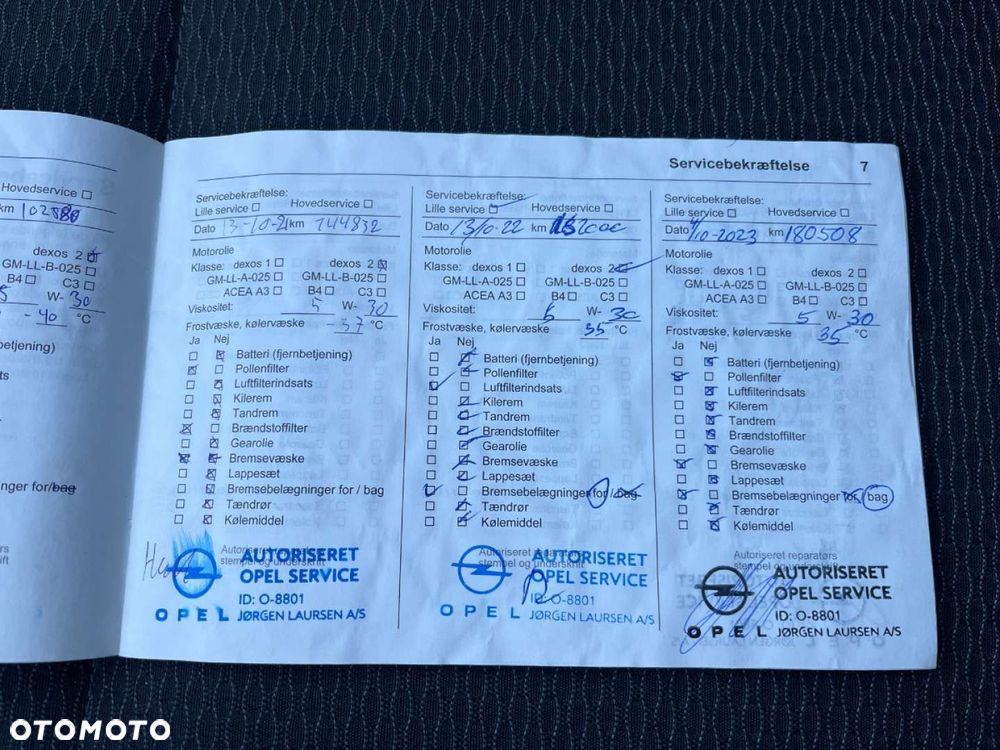 Hovedservice
km 102880
dexos 2
GM-LL-B-025
B4 C3
W- 30
-40 °C
Servicebekræftelse 7
Servicebekræftelse:
Lille service Hovedservice
Dato 13-10-21 km 144832
Motorolie
Klasse: dexos 1 dexos 2
GM-LL-A-025 GM-LL-B-025
ACEA A3 B4 C3
Viskositet: 5 W- 30
Frostvæske, kølervæske -37 °C
Ja Nej
Batteri (fjernbetjening)
Pollenfilter
Luftfilterindsats
Kilerem
Tandrem
Brændstoffilter
Gearolie
Bremsevæske
Lappesæt
Bremsebelægninger for / bag
Tændrør
Kølemiddel
Autoriseret reparatørs
stempel og underskrift
AUTORISERET
OPEL SERVICE
ID: O-8801
OPEL JØRGEN LAURSEN A/S
Servicebekræftelse:
Lille service Hovedservice
Dato 13/10-22 km
Motorolie
Klasse: dexos 1 dexos 2
GM-LL-A-025 GM-LL-B-025
ACEA A3 B4 C3
Viskositet: 5 W- 30
Frostvæske, kølervæske 35 °C
Ja Nej
Batteri (fjernbetjening)
Pollenfilter
Luftfilterindsats
Kilerem
Tandrem
Brændstoffilter
Gearolie
Bremsevæske
Lappesæt
Bremsebelægninger for / bag
Tændrør
Kølemiddel
Autoriseret reparatørs
stempel og underskrift
AUTORISERET
OPEL SERVICE
ID: O-8801
OPEL JØRGEN LAURSEN A/S
Servicebekræftelse:
Lille service Hovedservice
Dato /10-2023 km 180508
Motorolie
Klasse: dexos 1 dexos 2
GM-LL-A-025 GM-LL-B-025
ACEA A3 B4 C3
Viskositet: 5 W- 30
Frostvæske, kølervæske 35 °C
Ja Nej
Batteri (fjernbetjening)
Pollenfilter
Luftfilterindsats
Kilerem
Tandrem
Brændstoffilter
Gearolie
Bremsevæske
Lappesæt
Bremsebelægninger for / bag
Tændrør
Kølemiddel
Autoriseret reparatørs
stempel og underskrift
AUTORISERET
OPEL SERVICE
ID: O-8801
OPEL JØRGEN LAURSEN A/S
OTOMOTO